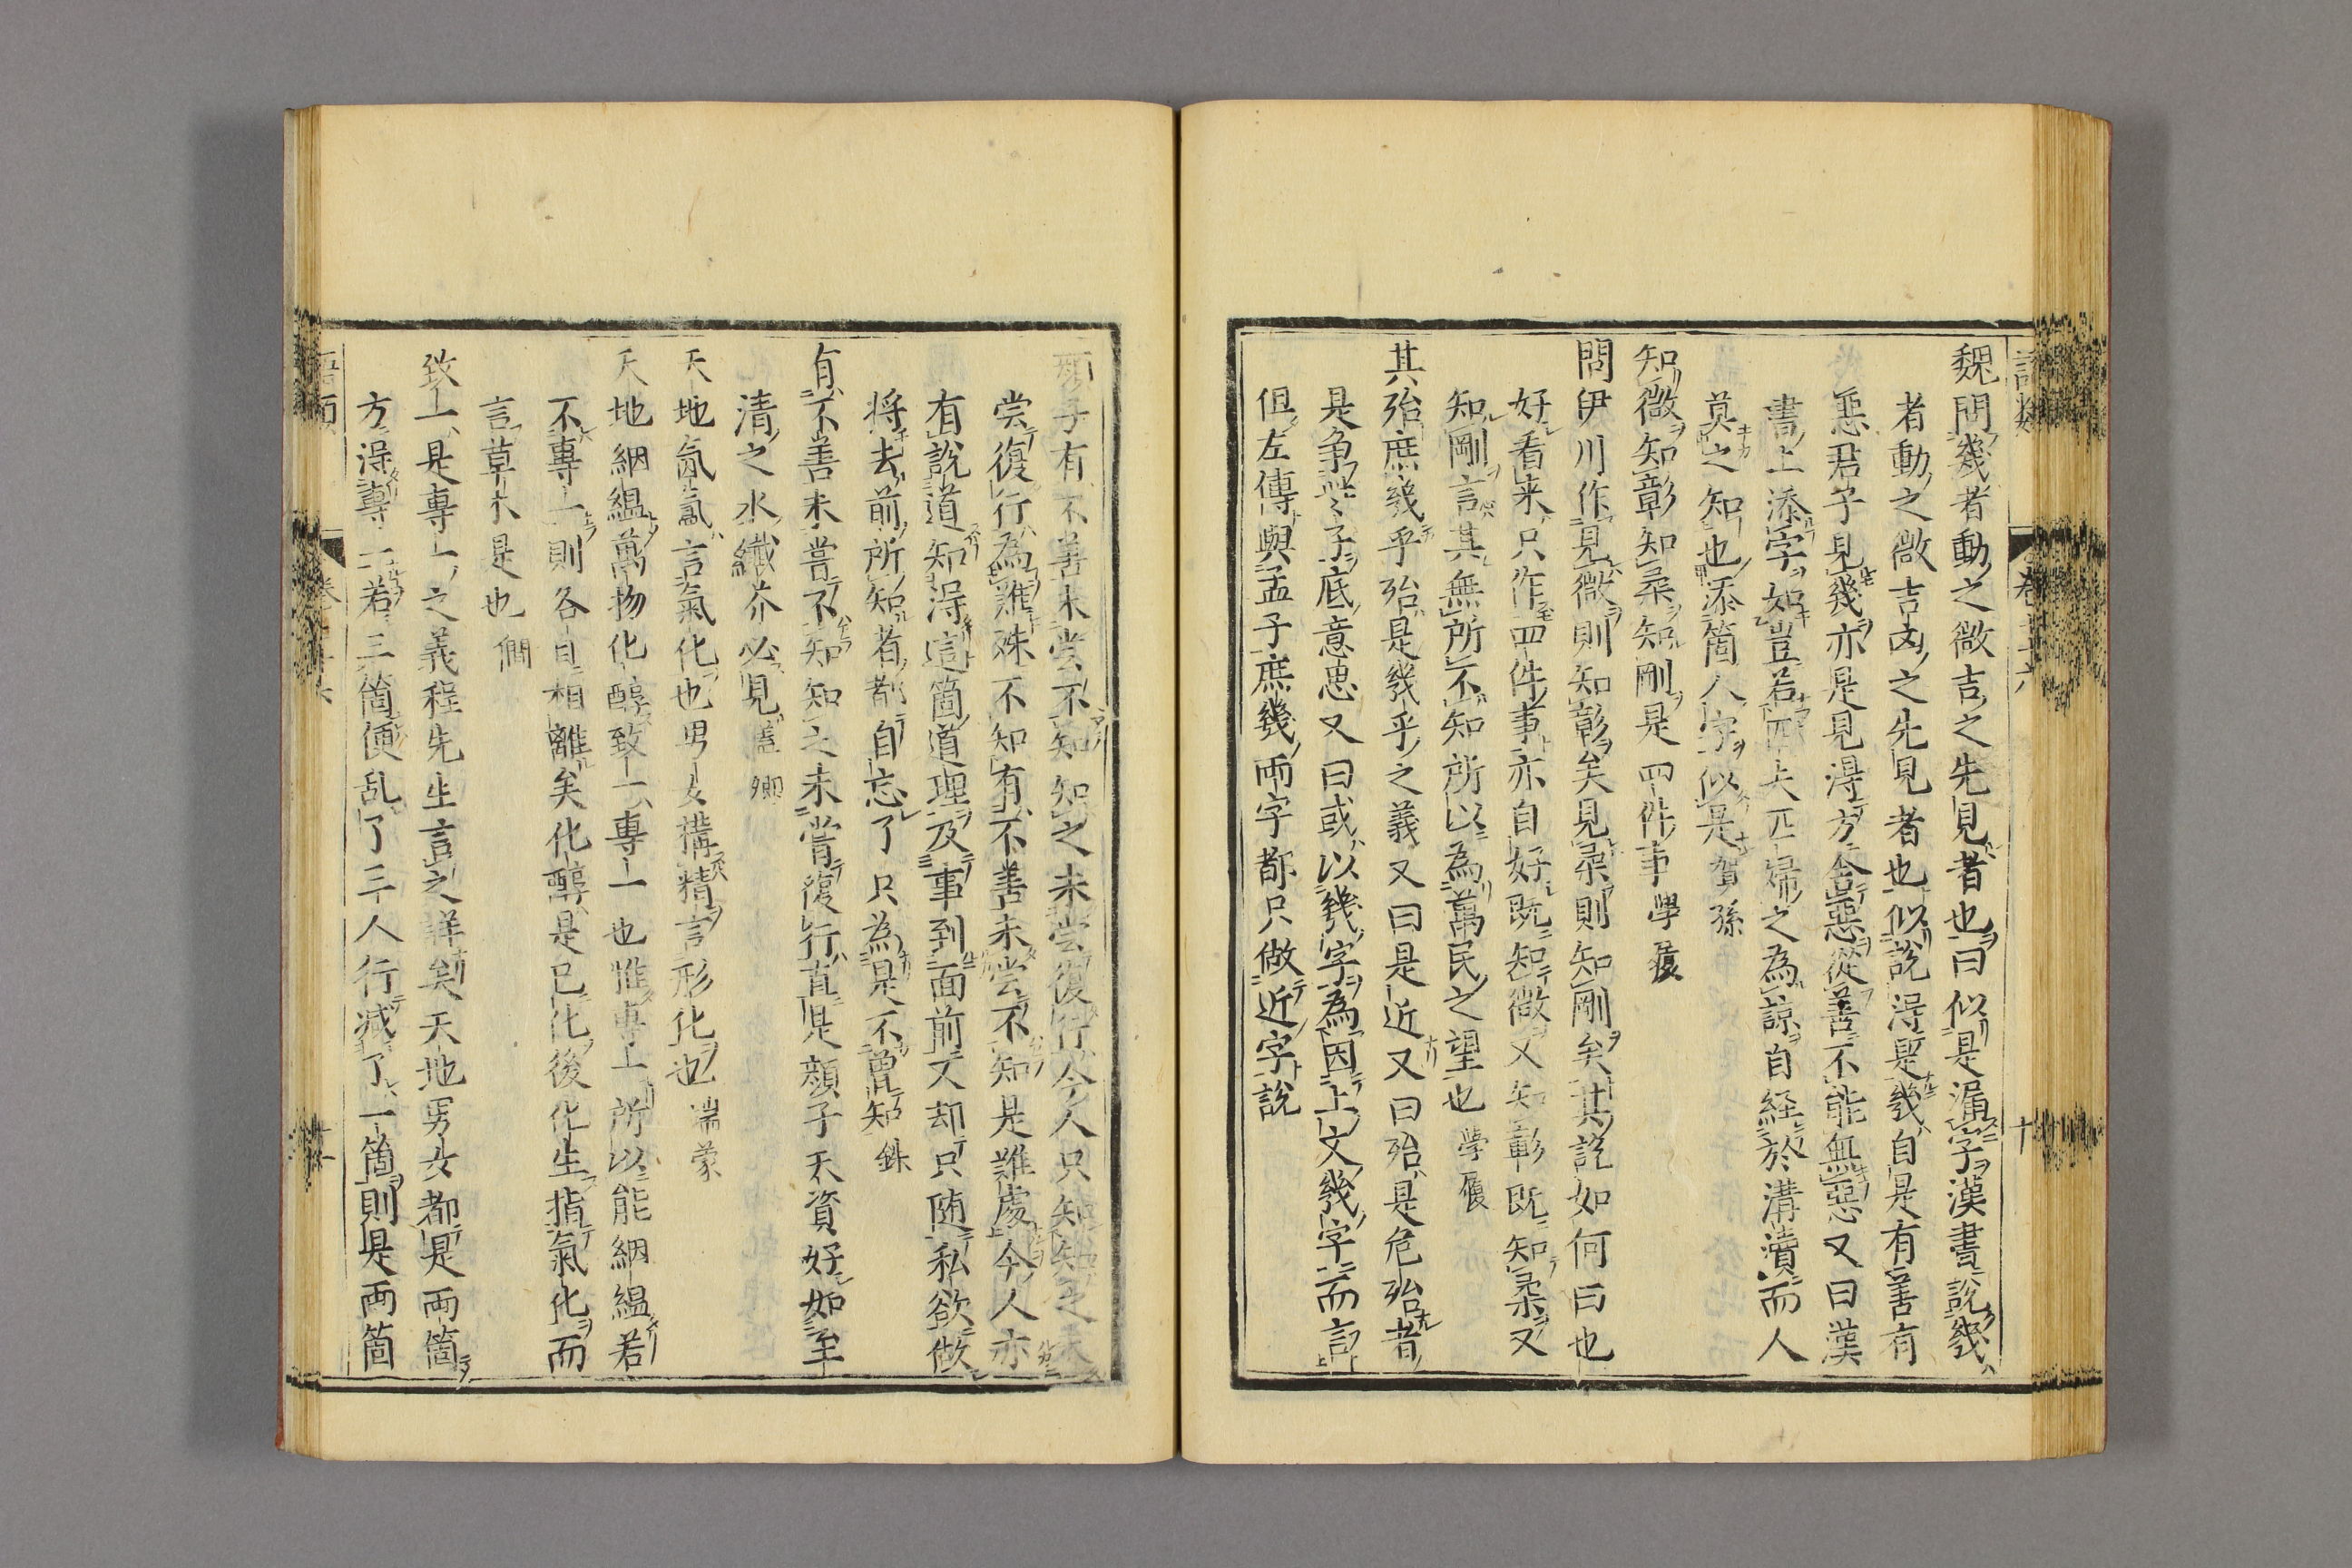 魏問幾者動之微吉之先見者也曰似是漏字漢書說幾
者動之微吉凶之先見者也似說得是幾自是有善有
惡君子見幾亦是見得方舍惡從善不能無惡又曰漢
書上添字如豈若匹夫匹婦之為諒自經於溝瀆而人
莫之知也添箇人字似是賀孫
知微知彰知柔知剛是四件事學履
問伊川作見微則知彰矣見柔則知剛矣其說如何曰也
好看来只作四件事亦自好既知微又知彰既知柔又
知剛言其無所不知所以為萬民之望也學履
其殆庶幾乎殆是幾乎之義又曰是近又曰殆是危殆者
是争些子底意思又曰或以幾字為因上文幾字而言
但左傳與孟子庶幾兩字都只做近字說
顏子有不善未尝不知知之未尝復行今人只知知之未
尝復行為難殊不知有不善未尝不知是難處今人亦
有說道知得這箇道理及事到面前又却只随私欲做
将去前所知者都自忘了只為是不曾知銖
有不善未嘗不知知之未嘗復行直是顔子天資好如至
清之水纖芥必見蓋卿
天地氤氳言氣化也男女搆精言形化也端蒙
天地絪緼萬物化醇致一專一也惟專一所以能絪緼若
不專一則各自相離矣化醇是已化後化生指氣化而
言草木是也僩
致一是專一之義程先生言之詳矣天地男女都是兩箇
方得專一若三箇便乱了三人行减了一箇則是两箇